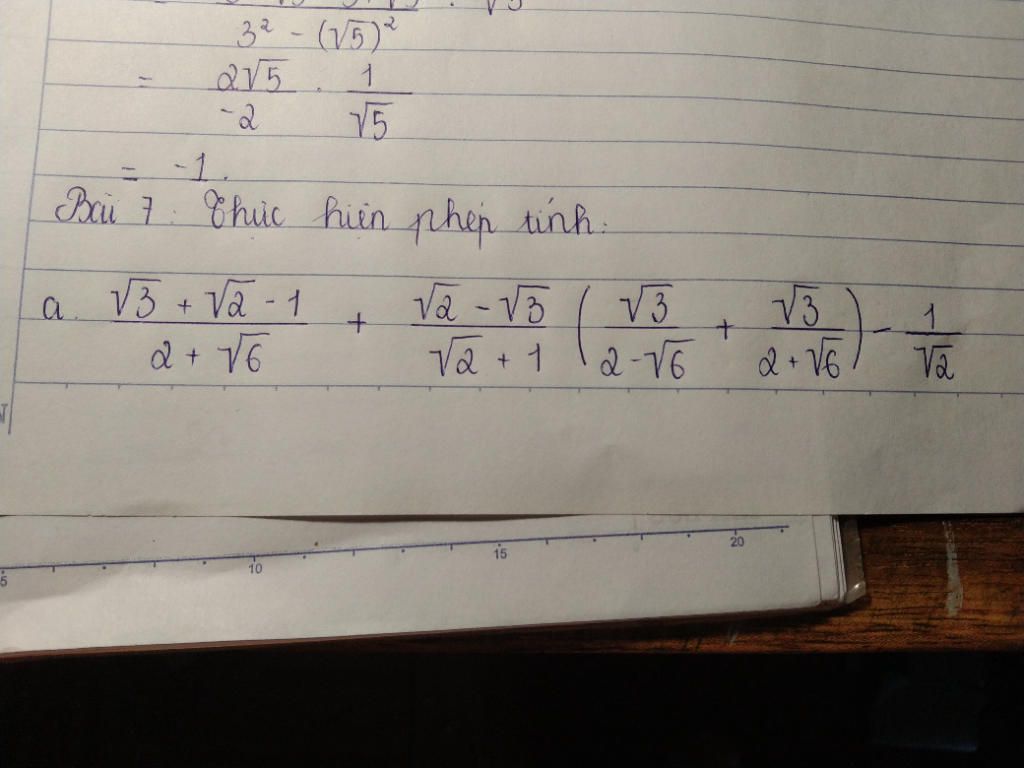 3² - (√5)²
= 2√5/-2 . 1/√5
= -1.
Bài 7: Thực hiện phép tính:
a. (√3 + √2 - 1)/(2 + √6) + (√2 - √3)/(√2 + 1) (√3/(2-√6) + √3/(2+√6)) - 1/√2
5 10 15 20